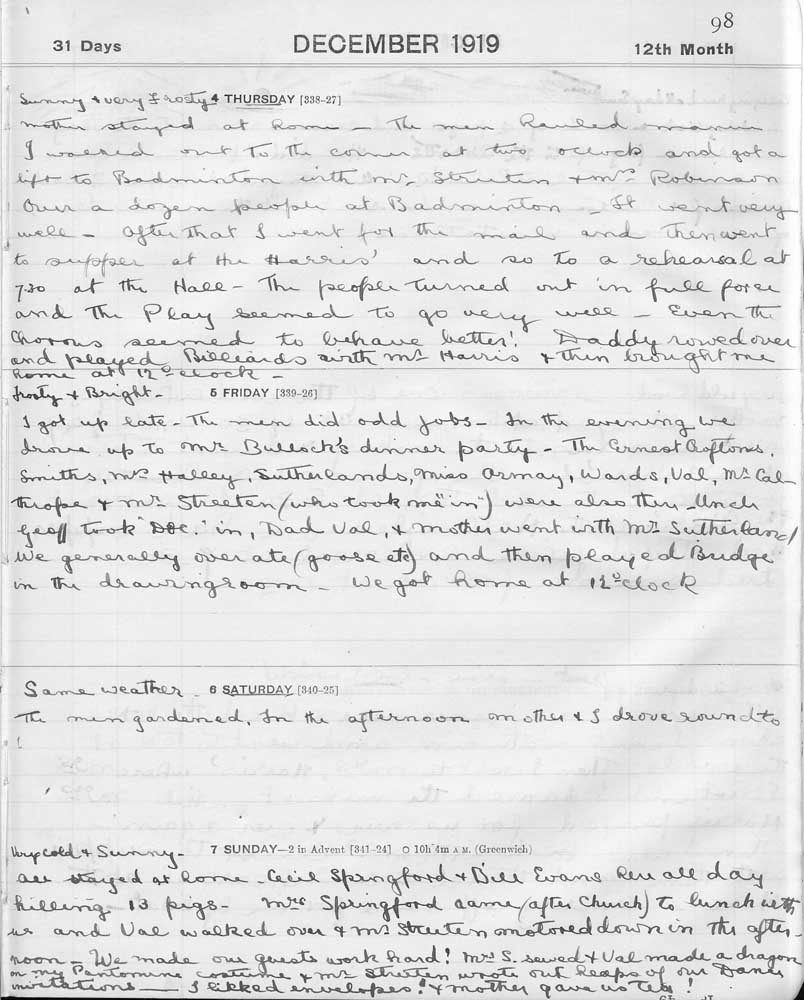 98
31 Days DECEMBER 1919 12th Month
Sunny & very Frosty 4 THURSDAY [338-27]
Mother stayed at home – The men hauled manure
I walked out to the corner at two o'clock and got a
lift to Badminton with Mr. Streeten & Mrs Robinson
Over a dozen people at Badminton – It went very
well – After that I went for the mail and then went
to supper at the Harris' and so to a rehearsal at
7.30 at the Hall – The people turned out in full force
and the Play seemed to go very well – Even the
Chorous seemed to behave better! Daddy rowed over
and played Billiards with Mr Harris & then brought me
home at 12 o'clock –
Frosty & Bright – 5 FRIDAY [339-26]
I got up late – The men did odd jobs – In the evening we
drove up to Mr Bullock's dinner party – The Ernest Croftons,
Smiths, Mrs Halley, Sutherlands, Miss Ormay, Wards, Val, Mr Cal-
thrope & Mr. Streeten (who took me "in") were also there – Uncle
Geoff took "Doc." in, Dad Val, & Mother went with Mr. Sutherland
We generally over ate (goose etc) and then played Bridge
in the drawingroom – We got home at 12 o'clock
Same weather – 6 SATURDAY [340-25]
The men gardened. In the afternoon mother & I drove round to
!
Very cold & Sunny – 7 SUNDAY—2 in Advent [341-24] O 10h 4m A.M. (Greenwich)
All stayed at home – Cecil Springford & Bill Evans here all day
killing 13 pigs – Mrs Springford came (after Church) to lunch with
us and Val walked over & Mr Streeten motored down in the after-
noon – We made our guests work hard! Mrs S. sewed & Val made a dragon
on my Pantomine costume & Mr Streeten wrote out heaps of our Dance
invitations — I licked envelopes! & mother gave us tea!